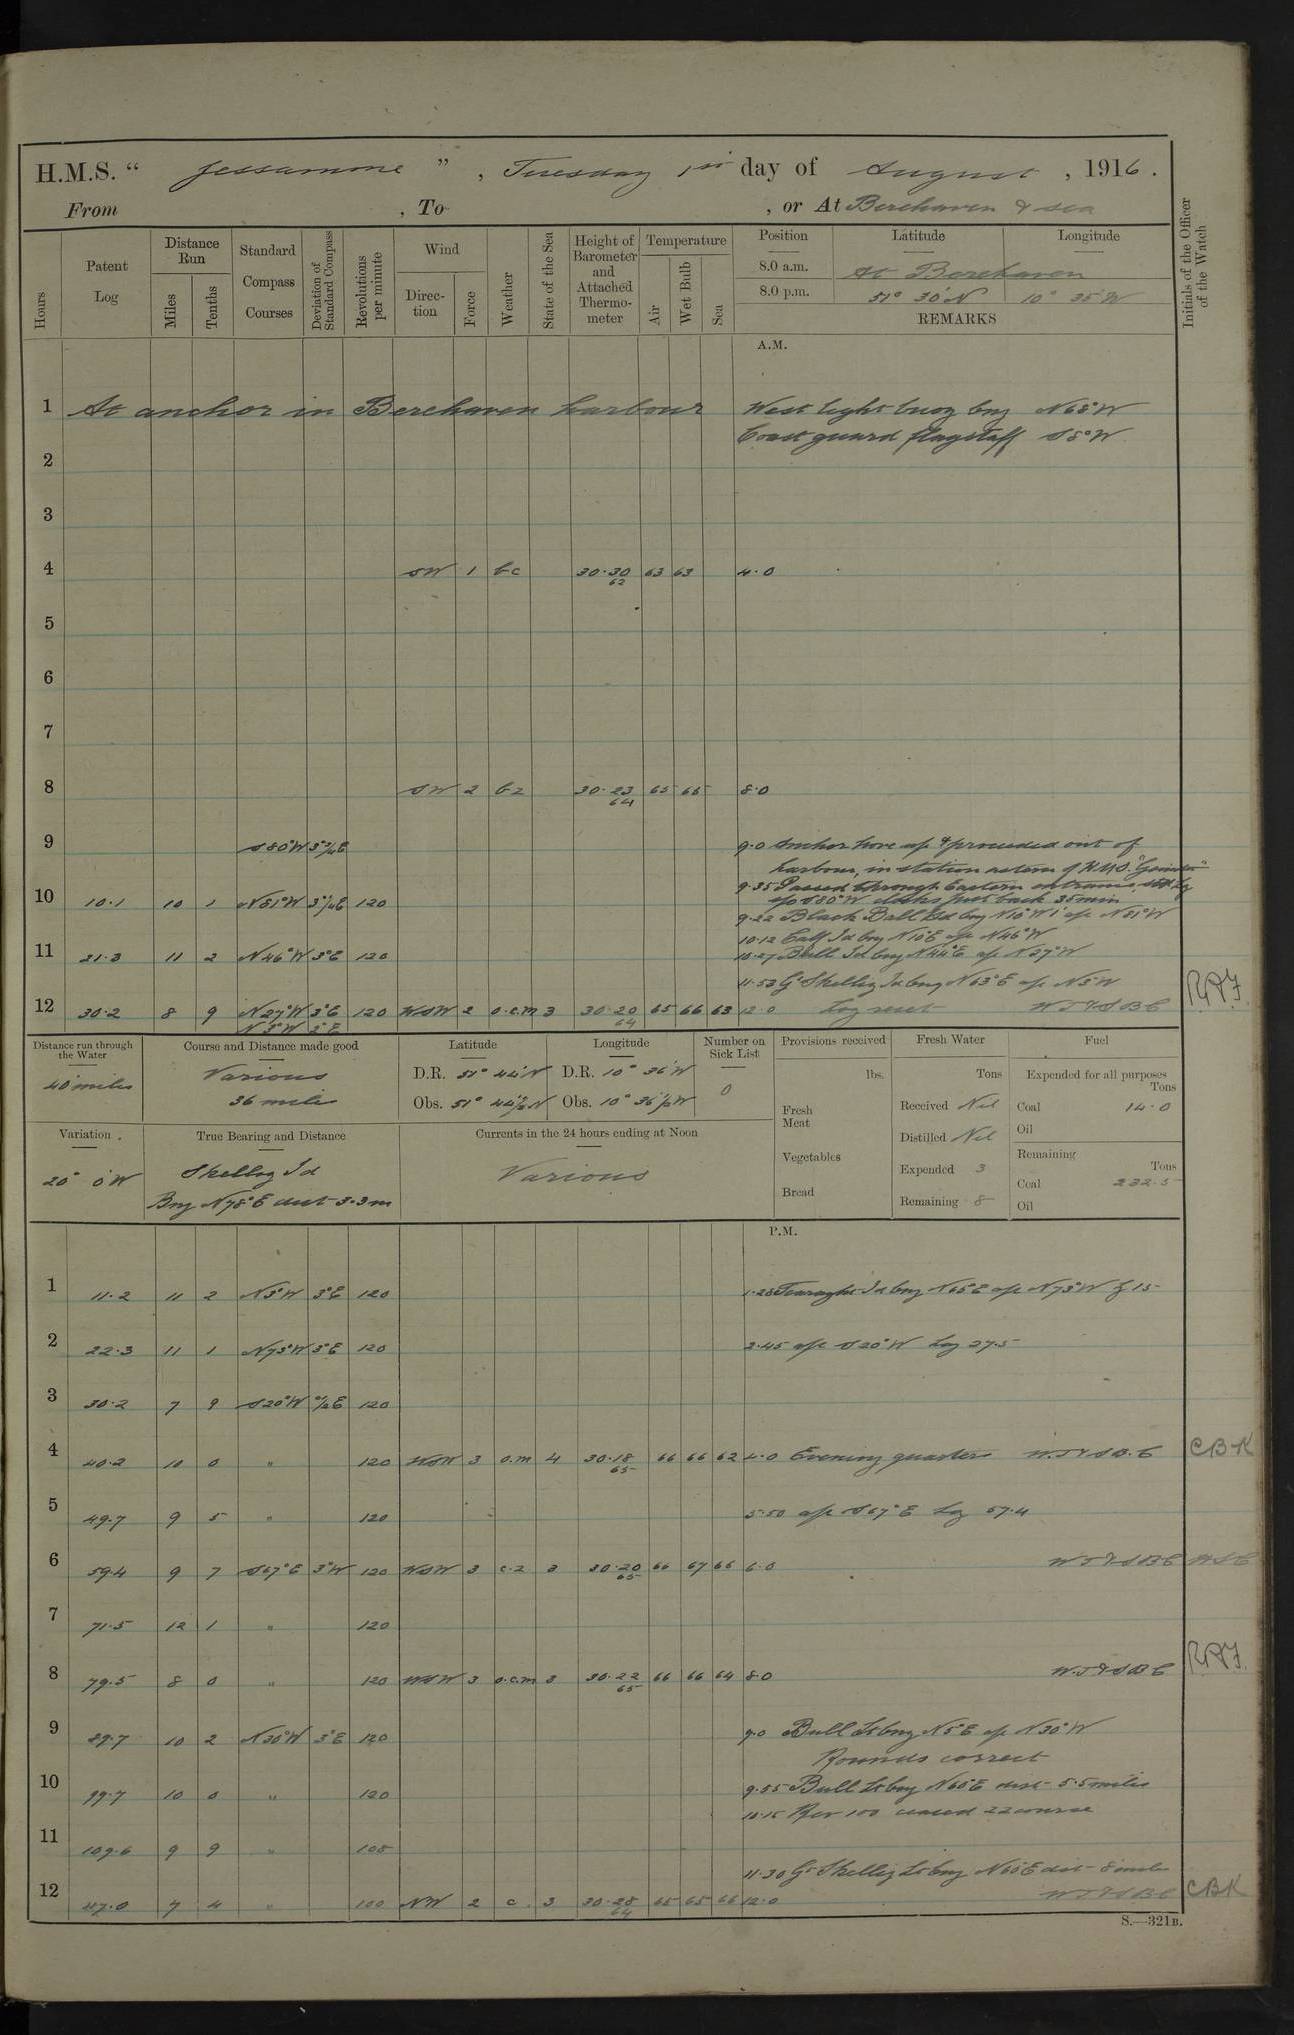 H.M.S. " Jessamine ", Tuesday 1st day of August, 1916.
From , To , or At Berehaven & sea
Hours
Patent Log
Distance Run
Miles
Tenths
Standard Compass Courses
Deviation of Standard Compass
Revolutions per minute
Wind
Direction
Force
Weather
State of the Sea
Height of Barometer and Attached Thermometer
Temperature
Air
Wet Bulb
Sea
Position
Latitude
Longitude
8.0 a.m. At Berehaven
8.0 p.m. 51° 30'N 10° 35'W
REMARKS
Initials of the Officer of the Watch
A.M.
1 At anchor in Berehaven harbour West light buoy brg N68°W
Coast guard flagstaff S8°W
2
3
4 SW 1 bc 30.30 62 63 63 4.0
5
6
7
8 SW 2 bz 30.23 64 65 65 8.0
9 S80°W 9.0 Anchor hove up & proceeded out of
harbour, in station astern of H.M.S.
9.35 Passed through Eastern entrance
S80°W clocks put back 35min
10 10.1 10 1 N81°W 120
9.22 Black Ball Hd brg N10°W a/c N81°W
10.12 Calf Id brg N10°E a/c N46°W
11 21.3 11 2 N46°W 3°E 120 10.27 Bull Id brg N44°E a/c N27°W
11.53 Gt Skellig Id brg N63°E a/c N5°W
12 30.2 8 9 N27°W 3°E 120 WSW 2 o.c.m 3 30.20 64 65 66 63 12.0 Log reset W.T & S.B.C
N5°W 3°E
Distance run through the Water
40 miles
Course and Distance made good
Various
36 miles
Latitude
D.R. 51° 44'N
Obs. 51° 44½'N
Longitude
D.R. 10° 36'W
Obs. 10° 36½'W
Number on Sick List
0
Provisions received
lbs.
Fresh Meat
Vegetables
Bread
Fresh Water
Tons
Received Nil
Distilled Nil
Expended 3
Remaining 8
Fuel
Expended for all purposes
Tons
Coal 14.0
Oil
Remaining
Tons
Coal 232.5
Oil
Variation
20° 0'W
True Bearing and Distance
Skellig Id
Brg N78°E dist 3.3m
Currents in the 24 hours ending at Noon
Various
P.M.
1 11.2 11 2 N5°W 3°E 120 1.28 Tearaght Id brg N65°E a/c N73°W
2 22.3 11 1 N73°W 3°E 120 2.45 a/c S20°W Log 27.5
3 30.2 7 9 S20°W 120
4 40.2 10 0 " 120 WSW 3 o.m 4 30.18 65 66 66 62 4.0 Evening quarters W.T & S.B.C CBK
5 49.7 9 5 " 120 5.50 a/c S67°E Log 57.4
6 59.4 9 7 S67°E 3°W 120 WSW 3 c.z 3 30.20 65 66 67 66 6.0 W.T & S.B.C
7 71.5 12 1 " 120
8 79.5 8 0 " 120 WSW 3 o.c.m 3 30.22 65 66 66 64 8.0 W.T & S.B.C
9 89.7 10 2 N30°W 3°E 120 9.0 Bull Lt brg N5°E a/c N30°W
Rounds correct
10 99.7 10 0 " 120 9.55 Bull Lt brg N60°E dist 5.5 miles
10.15 Rev 100 ceased zz course
11 109.6 9 9 " 108
11.30 Gt Skellig Lt brg N60°E dist 8 miles
12 7 4 " 100 NW 2 c. 3 30.28 64 65 65 66 12.0 W.T & S.B.C CBK
S.—321B.